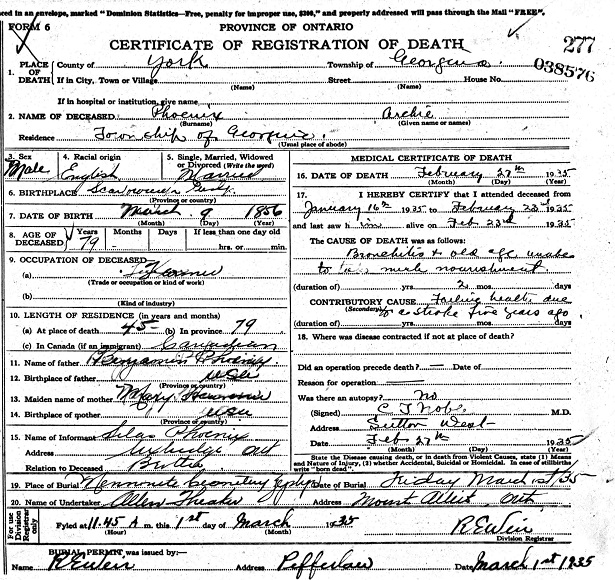 ced in an envelope, marked "Dominion Statistics—Free, penalty for improper use, $300," and properly addressed will pass through the Mail "FREE".
FORM 6 PROVINCE OF ONTARIO
CERTIFICATE OF REGISTRATION OF DEATH 277
038576
1. PLACE OF DEATH County of York Township of Georgina
(Name) (Name)
If in City, Town or Village Street House No.
If in hospital or institution, give name
2. NAME OF DECEASED Phoenix Archie
(Surname) (Given name or names)
Residence Township of Georgina
(Usual place of abode)
3. Sex Male 4. Racial origin English 5. Single, Married, Widowed or Divorced (Write the word) Married
6. BIRTHPLACE
(Province or country)
7. DATE OF BIRTH March 9 1856
(Month) (Day) (Year)
8. AGE OF DECEASED Years Months Days If less than one day old
79 - hrs. or min.
9. OCCUPATION OF DECEASED
(a) Farmer
(Trade or occupation or kind of work)
(b)
(Kind of industry)
10. LENGTH OF RESIDENCE (in years and months)
(a) At place of death 45 (b) In province 79
(c) In Canada (if an immigrant) Canadian
11. Name of father Benjamin Phoenix
12. Birthplace of father
(Province or country)
13. Maiden name of mother Mary
14. Birthplace of mother
(Province or country)
15. Name of Informant Silas Phoenix
Address Uxbridge Ont
Relation to Deceased Brother
MEDICAL CERTIFICATE OF DEATH
16. DATE OF DEATH February 27th 1935
(Month) (Day) (Year)
17. I HEREBY CERTIFY that I attended deceased from
January 16th 1935 to February 23rd 1935
and last saw him alive on Feb 23rd 1935
The CAUSE OF DEATH was as follows:
Bronchitis & old age unable
to take much nourishment
(duration of) yrs. 2 mos. days
CONTRIBUTORY CAUSE Failing health due
(Secondary) to a stroke five years ago
(duration of) yrs. mos. days
18. Where was disease contracted if not at place of death?
Did an operation precede death — Date
Reason for operation
Was there an autopsy? no
(Signed) C T Noble M.D.
Address Sutton West
Date Feb 27th 1935
State the Disease causing death, or in death from Violent Causes, state (1) Means and Nature of Injury, (2) whether Accidental, Suicidal or Homicidal. In case of stillbirths write "born dead".
19. Place of Burial Mennonite Cemetery Date of Burial Friday March 1st 35
20. Name of Undertaker Allen Theaker Address Mount Albert, Ont
For use of Division Registrar only
Fyled at 11.45 A m. this 1st day of March 1935
(Hour) (Month)
Division Registrar
BURIAL PERMIT was issued by:—
Name Address Pefferlaw Date March 1st 1935